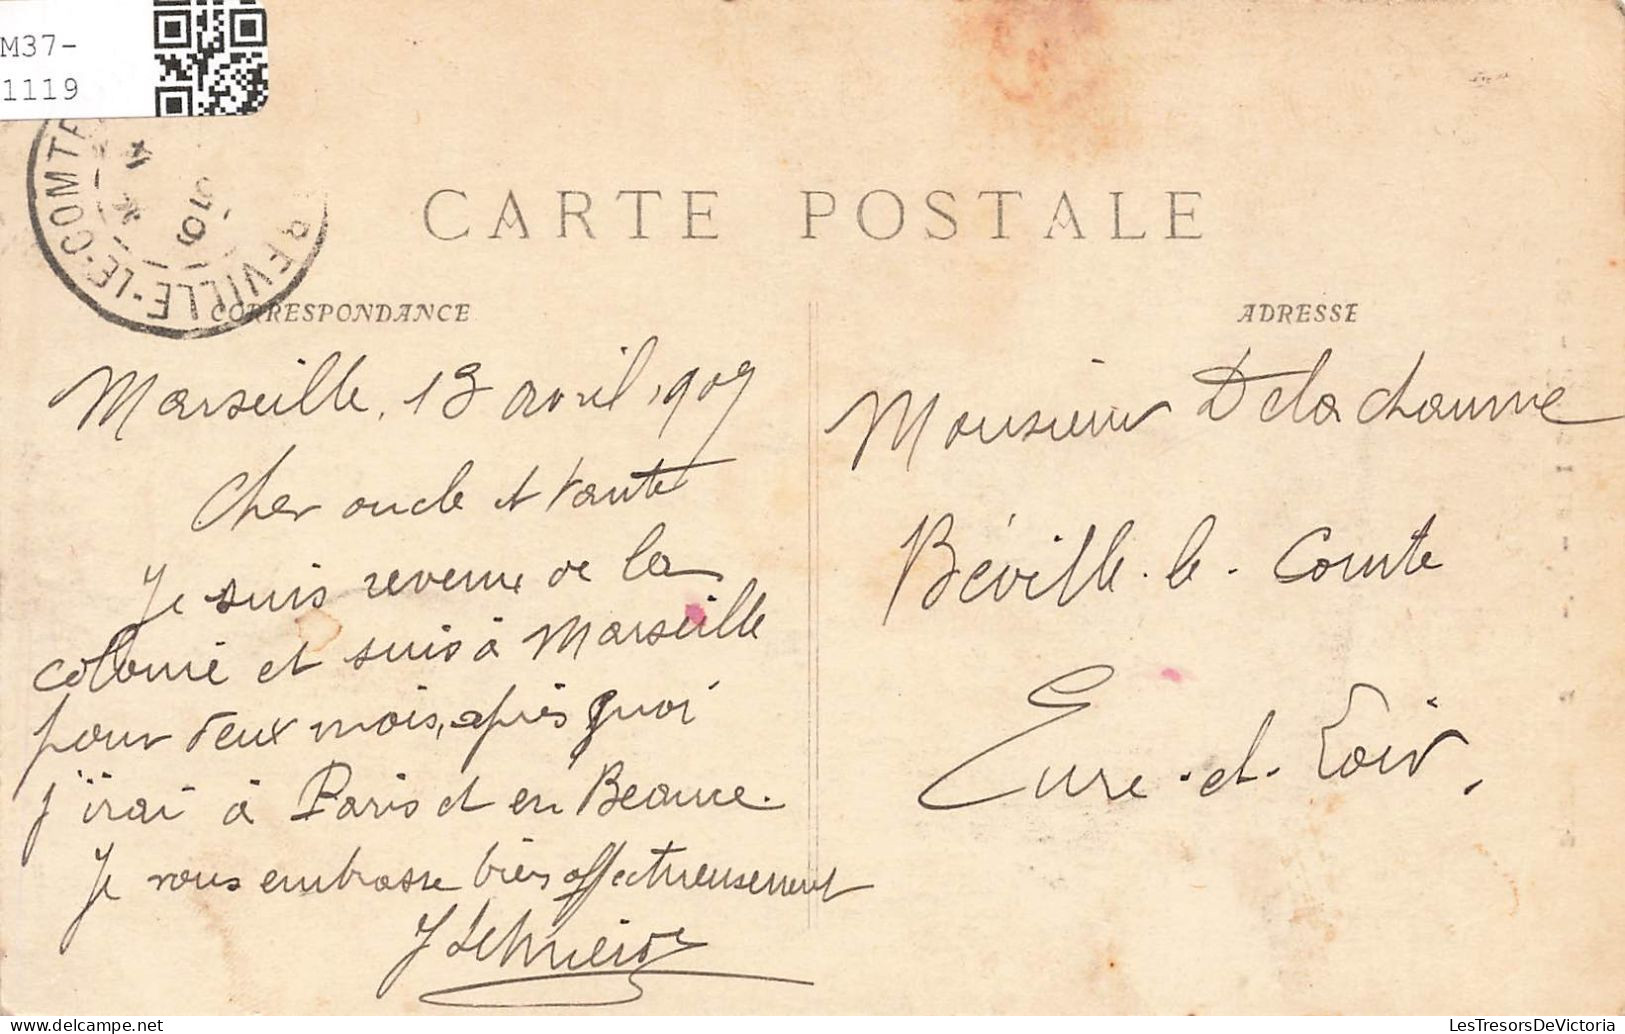 M37-
1119
BÉVILLE-LE-COMTE
CARTE POSTALE
CORRESPONDANCE
ADRESSE
Marseille, 13 avril 1909
Cher oncle et tante
Je suis revenue de la
colonie et suis à Marseille
pour deux mois, après quoi
j'irai à Paris et en Beauce.
Je vous embrasse bien affectueusement
Monsieur Delachaume
Béville-le-Comte
Eure-et-Loir.
LesTresorsDeVictoria